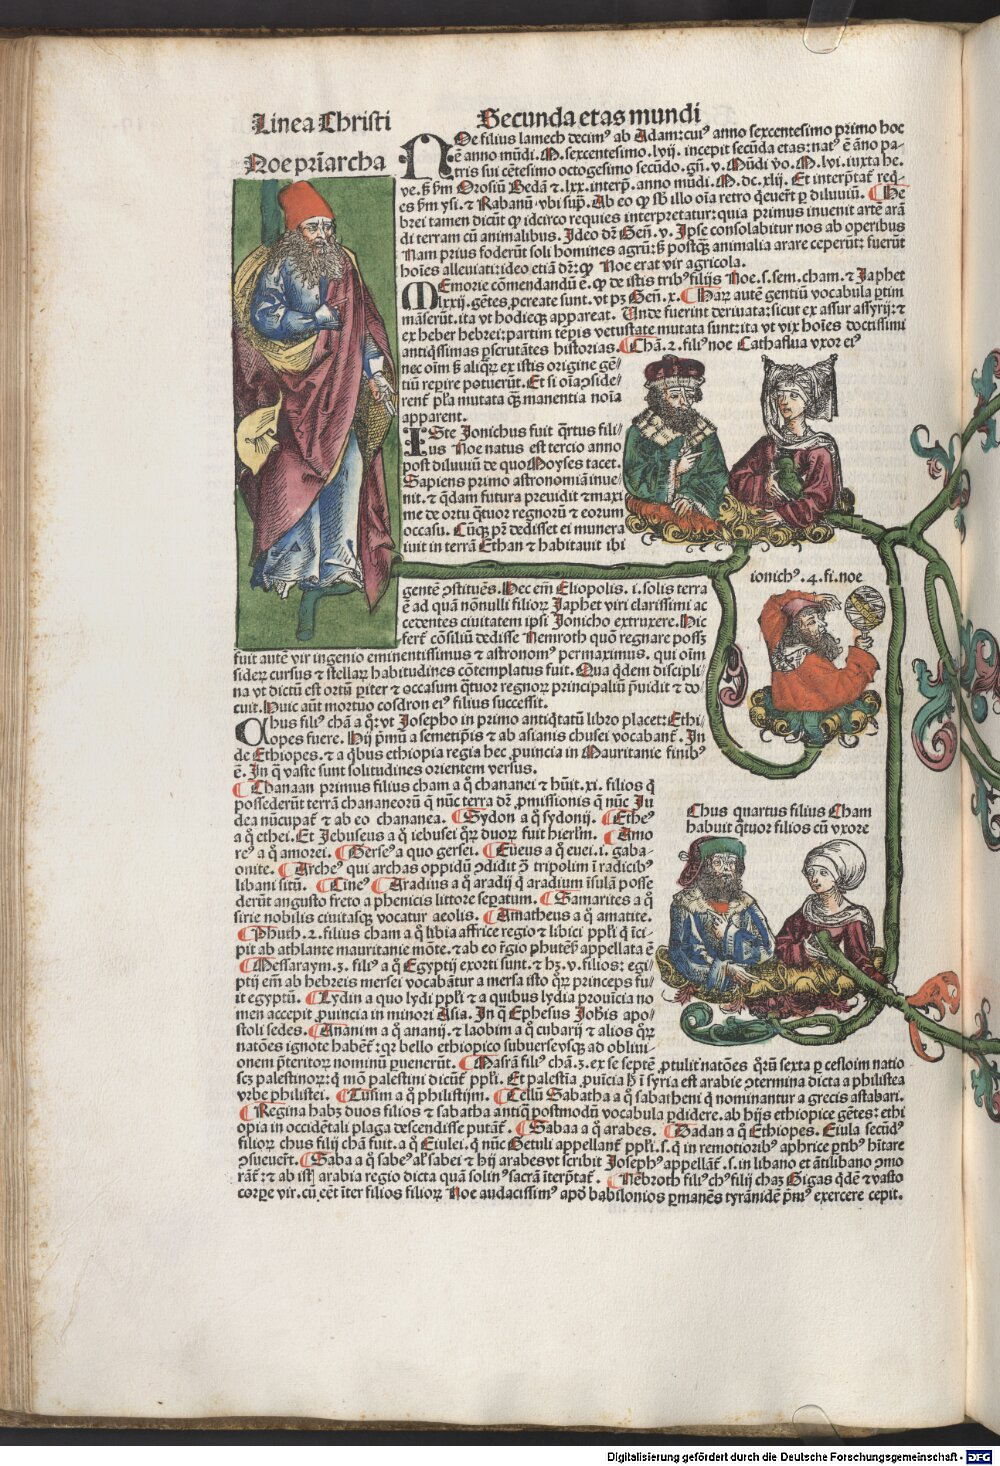 Linea Christi
Secunda etas mundi
Noe pr̄iarcha
NOe filius lamech decimꝰ ab Adam: cuiꝰ anno sexcentesimo primo hoc
ē anno mūdi. M. sexcentesimo. lvij. incepit secūda etas: natꝰ ē āno pa-
tris sui cētesimo octogesimo secūdo. gñ. v. Mūdi v̄o. M. lvi. iuxta he.
ve. ß ẜm Orosiū Bedā ⁊ .lxx. interp̄. anno mūdi. M. dc. xlij. Et interp̄tat᷑ req̄-
es ẜm ysi. ⁊ Rabanū vbi sup̄. Ab eo ꝙ sb̄ illo oīa retro q̄euer̄t ꝑ diluuiū. ¶ He
brei tamen dicūt ꝙ idcirco requies interpretatur: quia primus inuenit artē arā
di terram cū animalibus. Ideo dr̄ Geñ. v. Ipse consolabitur nos ab operibus
Nam prius foderūt soli homines agrū: ß postq̄ꝫ animalia arare ceperūt: fuerūt
hoīes alleuiati: ideo etiā dr̄: ꝙ Noe erat vir agricola.
MEmorie cōmendandū ē. ꝙ de istis tribꝰ filijs Noe. s. sem. cham. ⁊ Japhet
lxxij. gētes ꝓcreate sunt. vt pꝫ Geñ. x. ¶ Harꝝ autē gentiū vocabula ꝑtim
māserūt. ita vt hodieqꝫ appareat. Unde fuerint deriuata: sicut ex assur assyrij: ⁊
ex heber hebrei: partim tēpis vetustate mutata sunt: ita vt vix hoīes doctissimi
antiq̄ssimas ꝑscrutātes historias. ¶ Chā. 2. filiꝰ noe Cathaflua vxor eiꝰ
nec oīm ß aliq̄rꝝ ex istis origine gē⸗
tiū repire potuerūt. Et si oīa ↄside⸗
rent᷑ pl̄a mutata q̄ꝫ manentia noīa
apparent.
ISte Jonichus fuit q̄rtus fili⸗
us Noe natus est tercio anno
post diluuiū de quo Moyses tacet.
Sapiens primo astronomiā inue⸗
nit. ⁊ q̄dam futura preuidit ⁊ maxi
me de ortu q̄tuor regnorū ⁊ eorum
occasu. Cūqꝫ pr̄ dedisset ei munera
iuit in terrā Ethan ⁊ habitauit ibi
gentē ↄstituēs. Hec em̄ Eliopolis. i. solis terra
ē ad quā nōnulli filiorꝝ Japhet viri clarissimi ac
cedentes ciuitatem ipsi Jonicho extruxere. Hic
fert᷑ cōsiliū dedisse Nemroth quō regnare possꝫ
ionichꝰ. 4. fi. noe
fuit autē vir ingenio eminentissimus ⁊ astronomꝰ permaximus. qui oīm
siderꝝ cursus ⁊ stellarꝝ habitudines cōtemplatus fuit. Qua q̄dem discipli⸗
na vt dictū est ortū ꝑiter ⁊ occasum q̄tuor regnorꝝ principaliū p̄uidit ⁊ do⸗
cuit. Huic aūt mortuo cosdron eiꝰ filius successit.
CHus filiꝰ chā a q̊: vt Josepho in primo antiq̄tatū libro placet: Ethi⸗
opes fuere. Hij p̄mū a semetip̄is ⁊ ab asianis chusei vocabant᷑. In
de Ethiopes. ⁊ a q̄bus ethiopia regia hec ꝓuincia in Mauritanie finibꝰ
ē. In q̄ vaste sunt solitudines orientem versus.
¶ Chanaan primus filius cham a q̊ chananei ⁊ hūit. xi. filios q̄
possederūt terrā chananeorū q̄ nūc terra dr̄ ꝓmissionis q̄ nūc Ju
dea nūcupat᷑ ⁊ ab eo chananea. ¶ Sydon a q̊ sydonij. ¶ Etheꝰ
a q̊ ethei. Et Jebuseus a q̊ iebusei q̊rꝝ duorꝝ fuit hierl̄m. ¶ Amo
reꝰ a q̊ amorei. ¶ Gerseꝰ a quo gersei. ¶ Eueus a q̊ euei. i. gaba⸗
onite. ¶ Archeꝰ qui archas oppidū ↄdidit ↄ̄ tripolim ī radicibꝰ
libani sitū. ¶ Cineꝰ ¶ Aradius a q̊ aradij q̊ aradium īsulā posse
derūt angusto freto a phenicis littore sepatum. ¶ Samarites a q̊
sirie nobilis ciuitasqꝫ vocatur aeolis. ¶ Amatheus a q̊ amatite.
¶ Phuth. 2. filius cham a q̊ libia affrice regio ⁊ libici ppl̄i q̊ īci⸗
pit ab athlante mauritanie mōte. ⁊ ab eo r̄gio phutēß appellata ē
¶ Messaraym. 3. filiꝰ a q̊ Egyptij exorti sunt. ⁊ hꝫ. v. filios: egi⸗
ptij em̄ ab hebreis mersei vocabātur a mersa isto q̊rꝝ princeps fu⸗
it egyptū. ¶ Lydin a quo lydi ppl̄i ⁊ a quibus lydia prouīcia no
men accepit ꝓuincia in minori Asia. In q̄ Ephesus Joh̄is apo⸗
stoli sedes. ¶ Ananim a q̊ ananij. ⁊ laobim a q̊ cubarij ⁊ alios q̊rꝝ
natōes ignote habēt᷑: qr̄ bello ethiopico subuerse vsqꝫ ad obliui⸗
Chus quartus filius Cham
habuit q̄tuor filios cū vxore
onem p̄teritorꝝ nominū ꝑuenerūt. ¶ Masrā filiꝰ chā. 3. ex se septē ꝓtulit natōes q̊rū sexta ꝑ cesloim natio
scꝫ palestinorꝝ: q̊ mō palestini dicūt᷑ ppl̄i. Et palestīa ꝓuīcia h̄ ī syria est arabie ↄtermina dicta a philistea
vrbe philistei. ¶ Tusim a q̊ philistijm. ¶ Cellū Sabatha a q̊ sabatheni q̊ nominantur a grecis astabari.
¶ Regina habꝫ duos filios ⁊ sabatha antiq̄ postmodū vocabula ꝑdidere. ab hijs ethiopice gētes: ethi
opia in occidētali plaga descendisse putāt᷑. ¶ Sabaa a q̊ arabes. ¶ Dadan a q̊ Ethiopes. Eiula secūdꝰ
filiorꝝ chus filij chā fuit. a q̊ Eiulei. q̊ nunc Getuli appellant᷑ ppl̄i. s. q̊ in remotioribꝰ aphrice ꝑtibꝰ hītare
ↄsueuer̄t. ¶ Saba a q̊ sabeꝰ al̄ sabei ⁊ hij arabes vt scribit Josephꝰ appellāt᷑. s. in libano et ātilibano ↄmo
rāt᷑: ⁊ ab istꝭ arabia regio dicta quā solinꝰ sacrā īterp̄tat᷑. ¶ Nēbroth filiꝰ chꝰ filij chaꝫ Gigas q̄dē ⁊ vasto
corpe vir. cū eēt īter filios filiorꝝ Noe audacissimꝰ apd̄ babilonios ꝑmanēs tyrānidē p̄mꝰ exercere cepit.
Digitalisierung gefördert durch die Deutsche Forschungsgemeinschaft - DFG